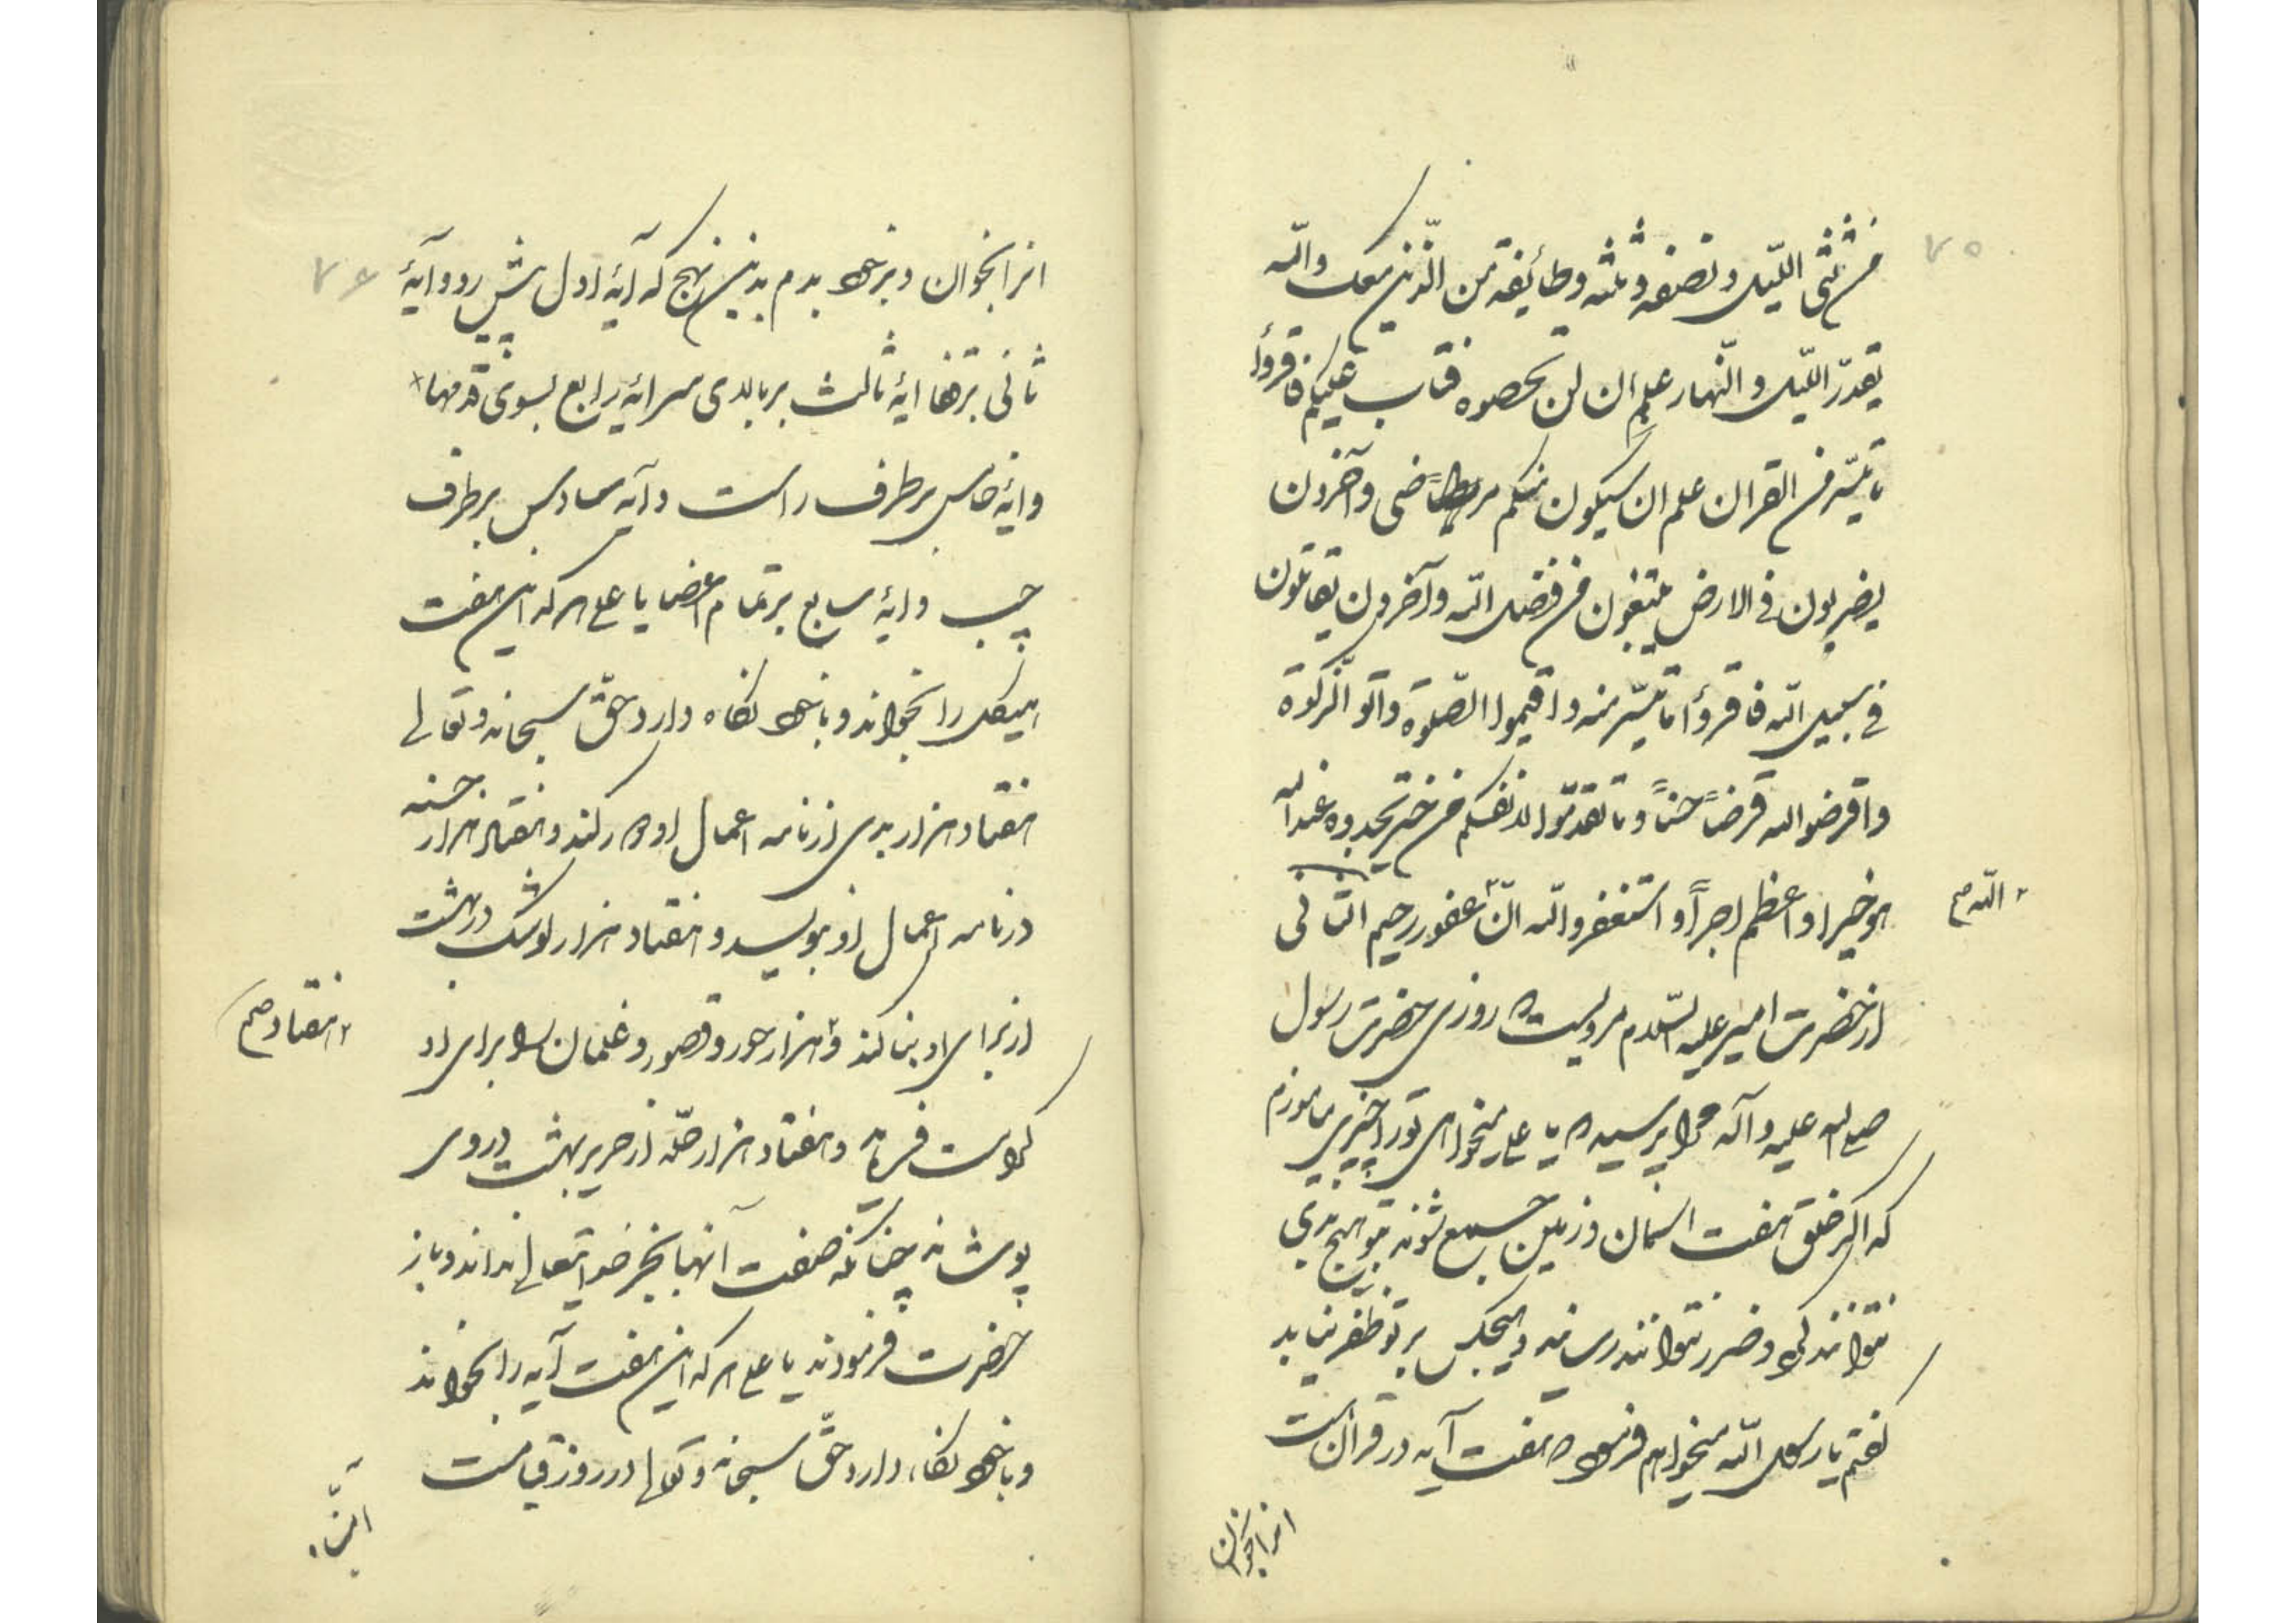 ۷۵
من ثلثی اللّیل و نصفه و ثلثه و طائفة من الّذین معک واللّه
یقدّر اللّیل و النّهار علم ان لن تحصوه فتاب علیکم فاقرؤا
ما تیسّر من القران علم ان سیکون منکم مرضی و آخرون
یضربون فی الارض یبتغون من فضل اللّه و آخرون یقاتلون
فی سبیل اللّه فاقرؤا ما تیسّر منه و اقیموا الصّلوة و آتو الزّکوة
و اقرضوا الله قرضاً حسناً و ما تقدّموا لانفسکم من خیر تجدوه عند الله
هو خیرا و اعظم اجراً و استغفروا اللّه انّ ۲ غفور رحیم الثانی
۲ اللّه صح
از حضرت امیر علیه السّلام مرویست که روزی حضرت رسول
صلی الله علیه و آله مرا پرسید که یا علی میخواهی تو را چیزی بیاموزم
که اگر خلق هفت اسمان و زمین جمع شوند بتو هیچ بدی
نتوانند کرد و ضرر نتوانند رسانید و هیچکس بر تو ظفر نیابد
گفتم یا رسول اللّه میخواهم فرمود که هفت آیه در قرآن است
انرا بخوان
۷۶
انرا بخوان و بر خود بدم بدین نهج که آیۀ اول پیش رو و آیۀ
ثانی برقفا ایۀ ثالث بر بالای سر ایۀ رابع بسوی قدمها
و ایۀ خامس بر طرف راست و آیه سادس بر طرف
چپ و ایۀ سابع بر تمام اعضا یا علی هر که این هفت
هیکل را بخواند و با خود نگاه دارد حقّ سبحانه و تعالی
هفتاد هزار بدی از نامه اعمال او دور کند و هفتاد هزار حسنه
در نامه اعمال او بنویسد و هفتاد هزار کوشک در بهشت
از برای او بنا کند و ۲ هزار حور و قصور و غلمان برای او
۲ هفتاد صح
کرامت فرماید و هفتاد هزار حلّه از حریر بهشت در وی
پوشاند چنانکه صفت آنها بجز خدایتعالی نداند و باز
حضرت فرمودند یا علی هر که این هفت آیه را بخواند
و با خود نگاه دارد حقّ سبحانه و تعالی در روز قیامت